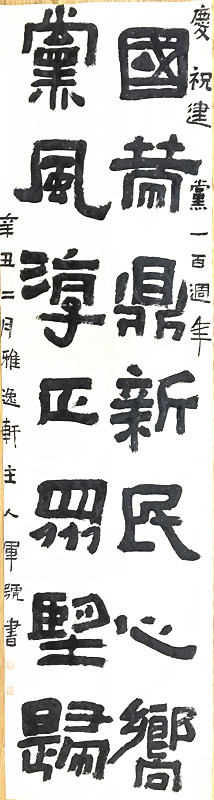 慶祝建黨一百週年
國鼎新民心嚮
黨風淳正眾朢歸
辛丑二月雅逸軒主人軍號書